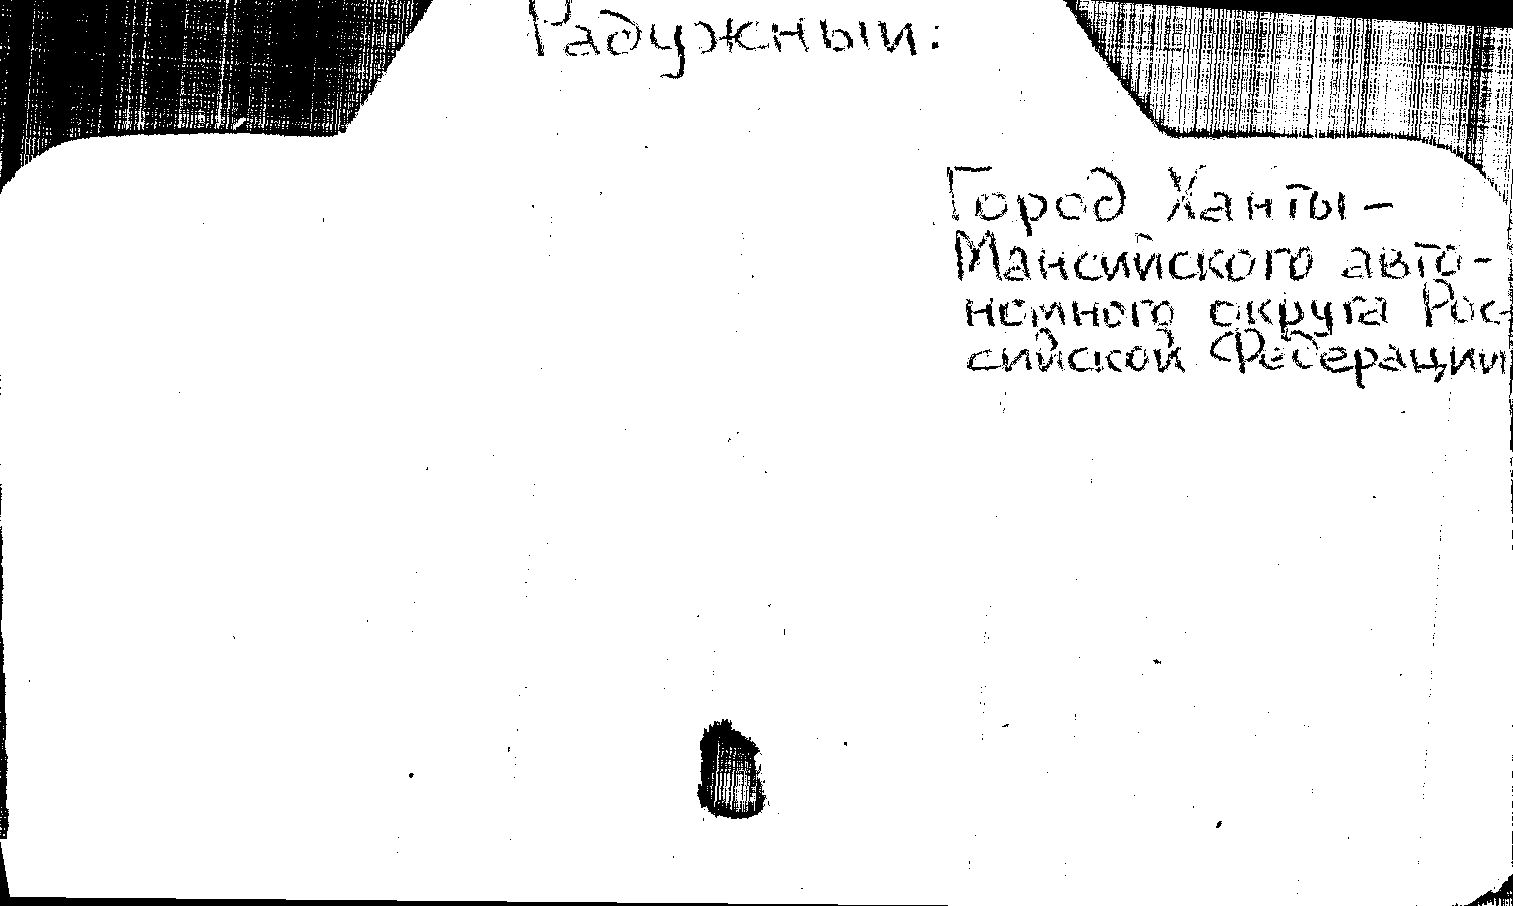 Радужный:
Город Ханты-
Мансийского авто-
номного округа Рос-
сийской Федерации